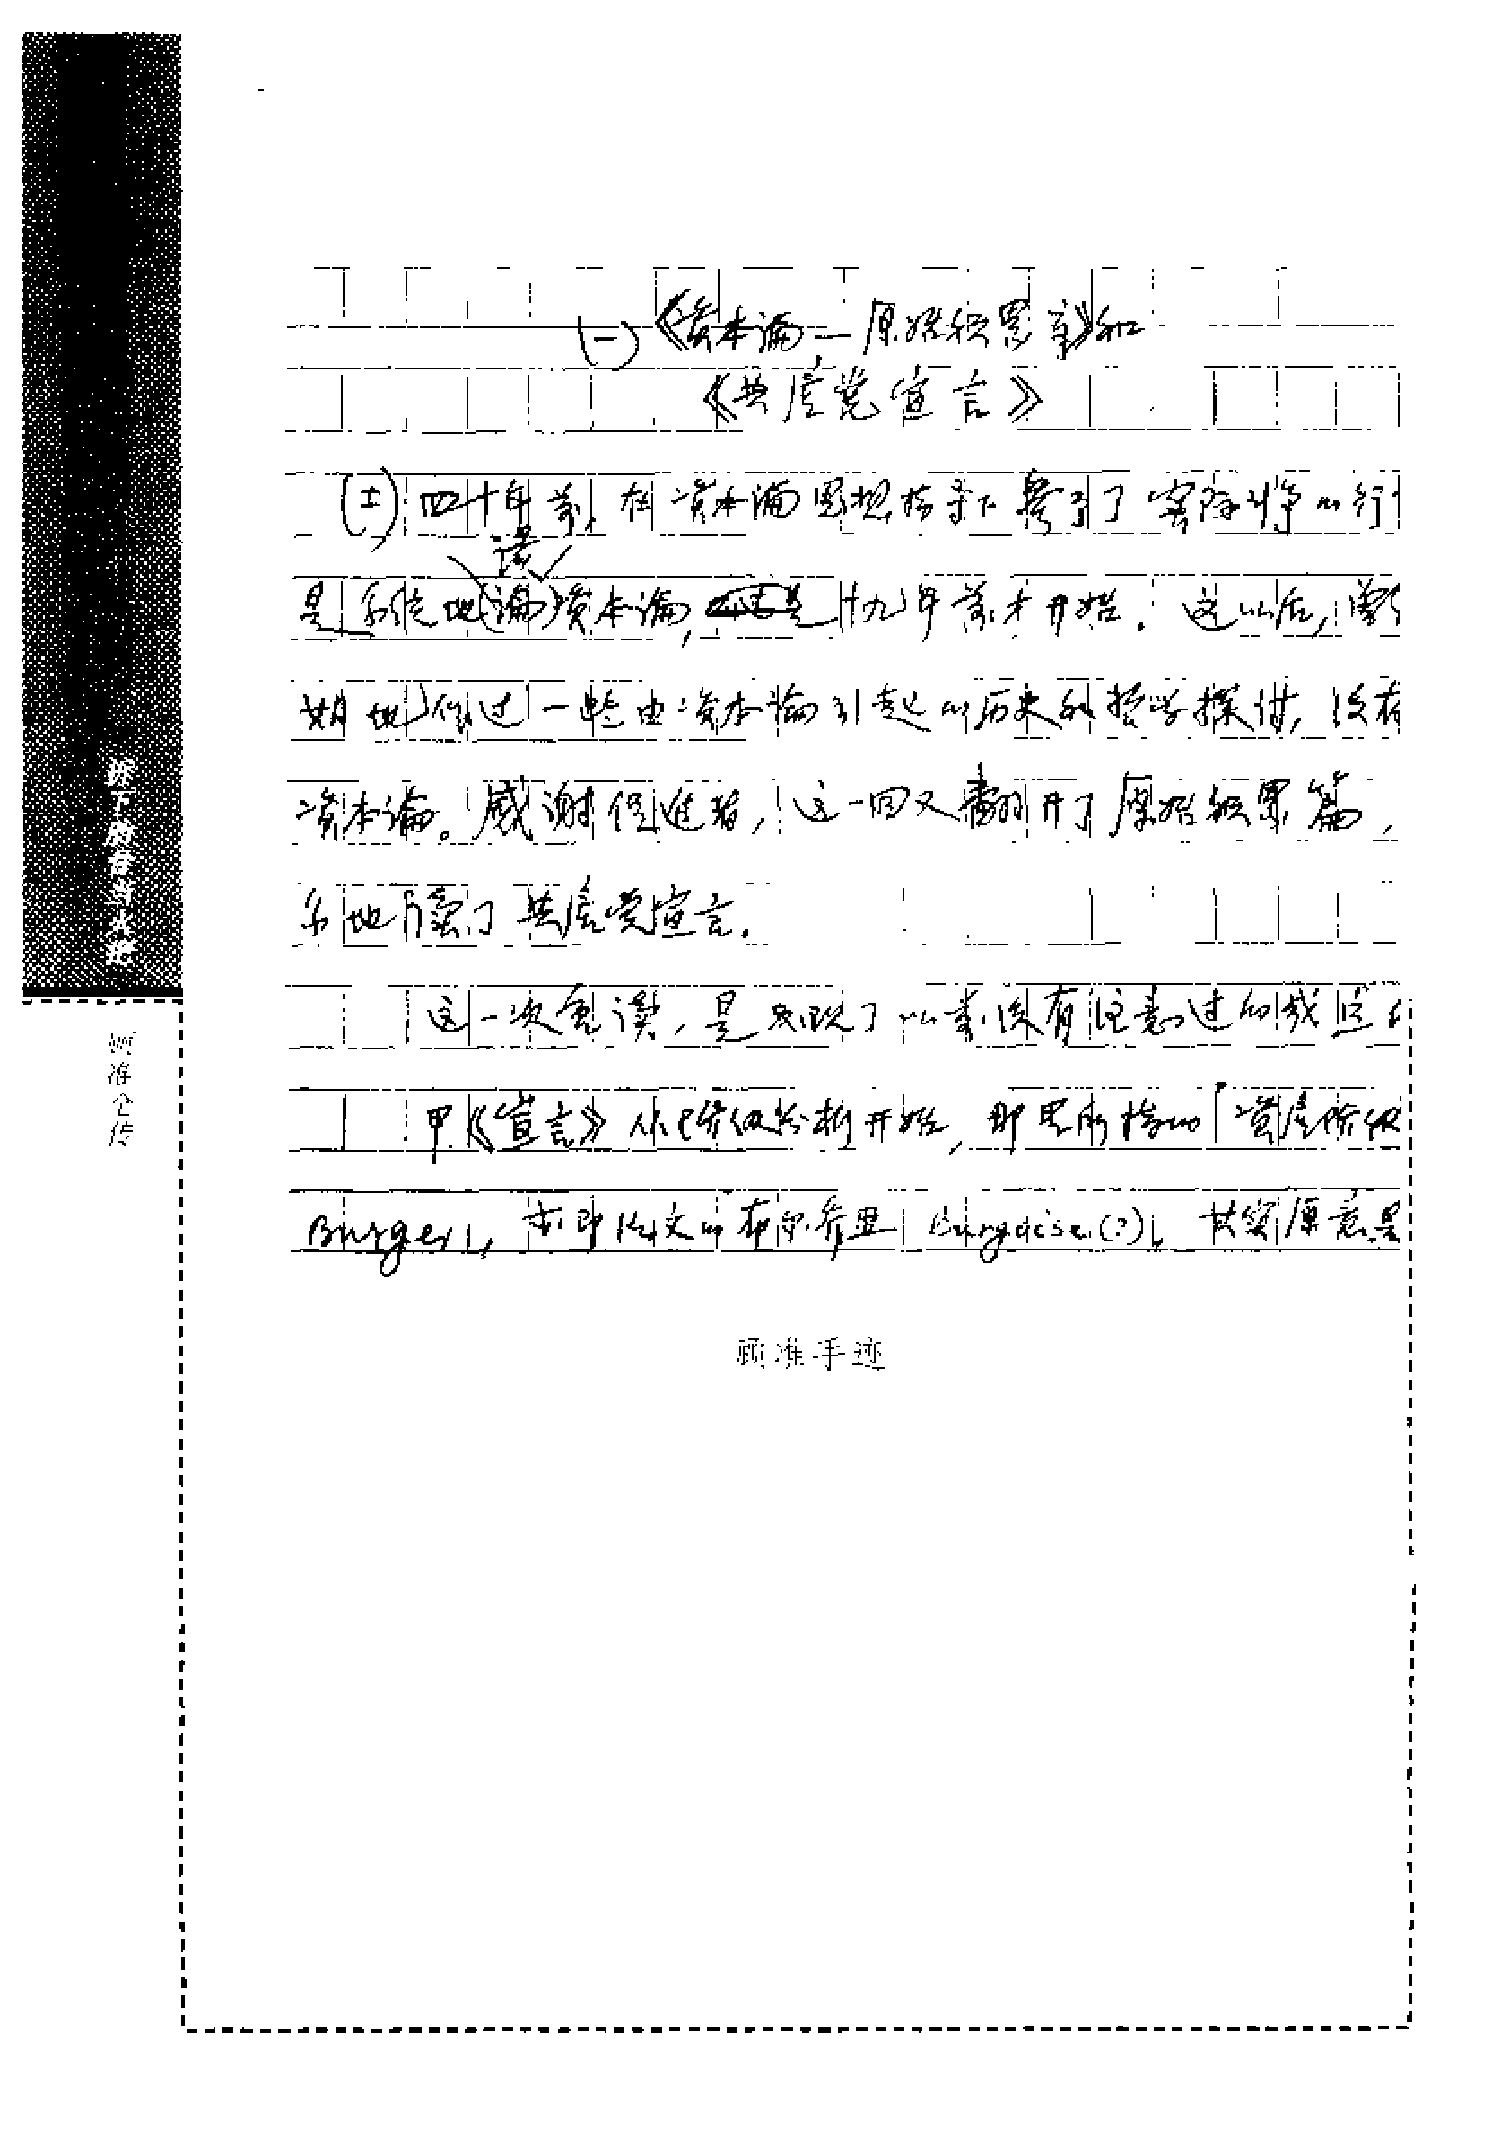 (一)《资本論—原始积累章》和
《共產党宣言》
(1) 四十年前,在资本論思想指导下参予了实际斗争的行
读
是系统地(論)资本論,十九年前才开始. 这以后,曾
期地作过一些由资本論引起的历史和哲学探讨,没有
资本論。感谢促進者,这一回又翻开了原始积累篇,
地读了共產党宣言.
这一次重读,是发现了以前没有注意过的或
甲《宣言》从阶级分析开始,那里所指的「资產阶级
Burger,亦即法文的布尔乔亚 Burgoise(?),其实原意是
顾准手迹
顾准全传